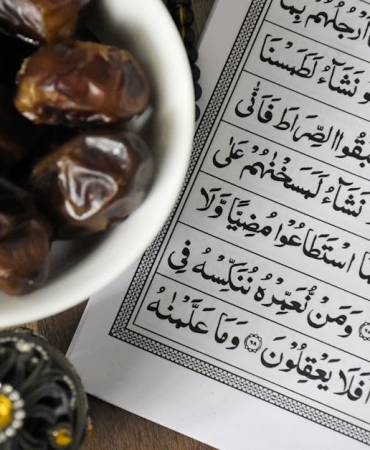 ارجلهم بما
و نشاء لطمسنا
بقوا الصراط فانى
نشاء لمسخنهم على
استطاعوا مضيا ولا
ومن نعمره ننكسه فى
افلا يعقلون ٦٨ وما علمنه